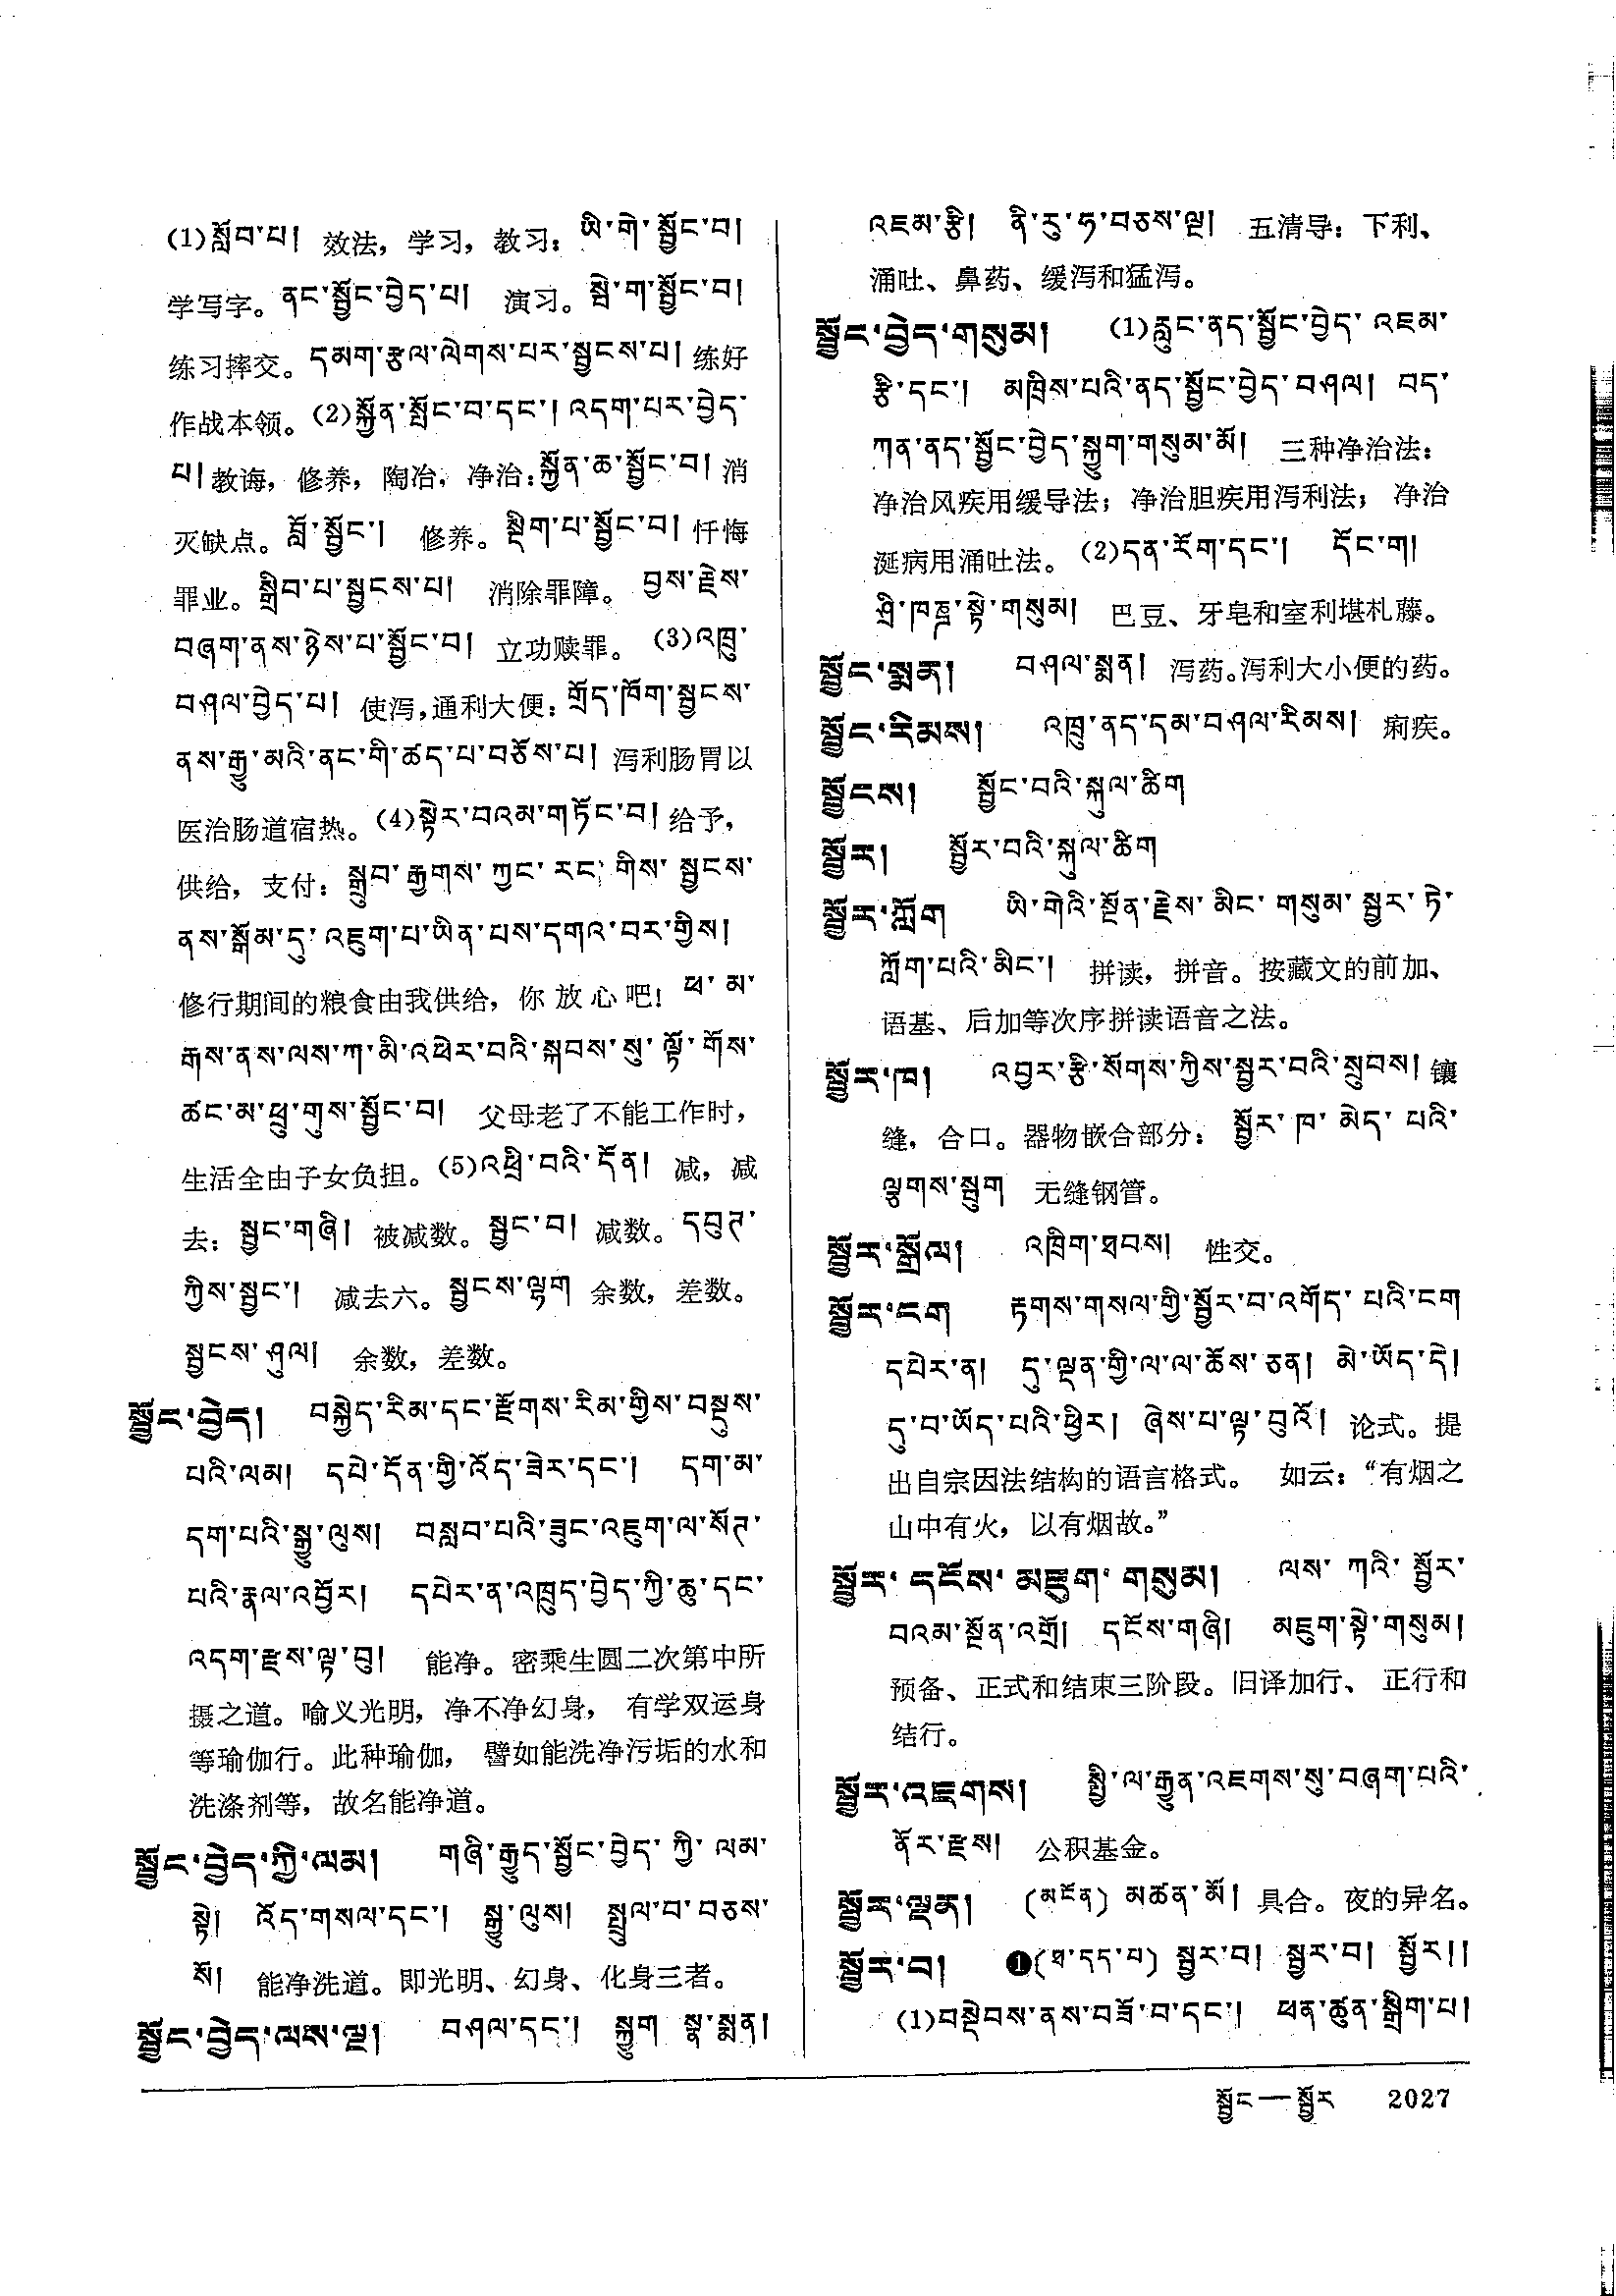 (1)སློབ་པ། 效法，学习，教习：ཡི་གེ་སྦྱོང་བ།
学写字。ནང་སྦྱོང་བྱེད་པ། 演习。སྦེ་ག་སྦྱོང་བ།
练习摔交。དམག་རྩལ་ལེགས་པར་སྦྱངས་པ། 练好
作战本领。(2)སྐྱོན་སློང་བ་དང་། འདག་པར་བྱེད་
པ། 教诲，修养，陶冶，净治：སྐྱོན་ཆ་སྦྱོང་བ། 消
灭缺点。བློ་སྦྱོང་། 修养。སྡིག་པ་སྦྱོང་བ། 忏悔
罪业。སྒྲིབ་པ་སྦྱངས་པ། 消除罪障。བྱས་རྗེས་
བཞག་ནས་ཉེས་པ་སྦྱོང་བ། 立功赎罪。(3)འཁྲུ་
བཤལ་བྱེད་པ། 使泻，通利大便：གྲོད་ཁོག་སྦྱངས་
ནས་རྒྱུ་མའི་ནང་གི་ཚད་པ་བཅོས་པ། 泻利肠胃以
医治肠道宿热。(4)སྟེར་བའམ་གཏོང་བ། 给予，
供给，支付：སྒྲུབ་རྒྱགས་ཀྱང་རང་གིས་སྦྱངས་
ནས་སྒོམ་དུ་འཇུག་པ་ཡིན་པས་དགའ་བར་གྱིས།
修行期间的粮食由我供给，你放心吧！ཕ་མ་
རྒས་ནས་ལས་ཀ་མི་འཕེར་བའི་སྐབས་སུ་ལྟོ་གོས་
ཚང་མ་ཕྲུ་གུས་སྦྱོང་བ། 父母老了不能工作时，
生活全由子女负担。(5)འཕྲི་བའི་དོན། 减，减
去：སྦྱང་གཞི། 被减数。སྦྱང་བ། 减数。དྲུག་
ཀྱིས་སྦྱང་། 减去六。སྦྱངས་ལྷག 余数，差数。
སྦྱངས་ཤུལ། 余数，差数。
སྦྱོང་བྱེད། བསྐྱེད་རིམ་དང་རྫོགས་རིམ་གྱིས་བསྡུས་
པའི་ལམ། དཔེ་དོན་གྱི་འོད་ཟེར་དང་། དག་མ་
དག་པའི་སྒྱུ་ལུས། བསླབ་པའི་ཟུང་འཇུག་ལ་སོཊ་
པའི་རྣལ་འབྱོར། དཔེར་ན་འཁྲུད་བྱེད་ཀྱི་ཆུ་དང་
འདག་རྫས་ལྟ་བུ། 能净。密乘生圆二次第中所
摄之道。喻义光明，净不净幻身， 有学双运身
等瑜伽行。此种瑜伽， 譬如能洗净污垢的水和
洗涤剂等，故名能净道。
སྦྱོང་བྱེད་ཀྱི་ལམ། གཞི་རྒྱུད་སྦྱོང་བྱེད་ཀྱི་ལམ་
སྟེ། འོད་གསལ་དང་། སྒྱུ་ལུས། སྤྲུལ་བ་བཅས་
སོ། 能净洗道。即光明、幻身、化身三者。
སྦྱོང་བྱེད་ལས་ལྔ། བཤལ་དང་། སྐྱུག སྣ་སྨན།
འཇམ་རྩི། ནི་རུ་ཧ་བཅས་ལྔ། 五清导：下利、
涌吐、鼻药、缓泻和猛泻。
སྦྱོང་བྱེད་གསུམ། (1)རླུང་ནད་སྦྱོང་བྱེད་འཇམ་
རྩི་དང་། མཁྲིས་པའི་ནད་སྦྱོང་བྱེད་བཤལ། བད་
ཀན་ནད་སྦྱོང་བྱེད་སྐྱུག་གསུམ་མོ། 三种净治法：
净治风疾用缓导法；净治胆疾用泻利法；净治
涎病用涌吐法。(2)དན་རོག་དང་། དོང་ག།
ཤྲི་ཁཎྜ་སྟེ་གསུམ། 巴豆、牙皂和室利堪札藤。
སྦྱོང་སྨན། བཤལ་སྨན། 泻药。泻利大小便的药。
སྦྱོང་རིམས། འཁྲུ་ནད་དམ་བཤལ་རིམས། 痢疾。
སྦྱོངས། སྦྱོང་བའི་སྐུལ་ཚིག
སྦྱོར། སྦྱོར་བའི་སྐུལ་ཚིག
སྦྱོར་ཀློག ཡི་གེའི་སྔོན་རྗེས་མིང་གསུམ་སྦྱར་ཏེ་
ཀློག་པའི་མིང་། 拼读，拼音。按藏文的前加、
语基、后加等次序拼读语音之法。
སྦྱོར་ཁ། འབྱར་རྩི་སོགས་ཀྱིས་སྦྱར་བའི་སྲུབས། 镶
缝，合口。器物嵌合部分：སྦྱོར་ཁ་མེད་པའི་
ལྕགས་སྦུག 无缝钢管。
སྦྱོར་སྒྲོལ། འཁྲིག་ཐབས། 性交。
སྦྱོར་ངག རྟགས་གསལ་གྱི་སྦྱོར་བ་འགོད་པའི་ངག
དཔེར་ན། དུ་ལྡན་གྱི་ལ་ལ་ཆོས་ཅན། མེ་ཡོད་དེ།
དུ་བ་ཡོད་པའི་ཕྱིར། ཞེས་པ་ལྟ་བུའོ། 论式。提
出自宗因法结构的语言格式。 如云：“有烟之
山中有火，以有烟故。”
སྦྱོར་དངོས་མཇུག་གསུམ། ལས་ཀའི་སྦྱོར་
བའམ་སྔོན་འགྲོ། དངོས་གཞི། མཇུག་སྟེ་གསུམ།
预备、正式和结束三阶段。旧译加行、 正行和
结行。
སྦྱོར་འཇགས། སྤྱི་ལ་རྒྱུན་འཇགས་སུ་བཞག་པའི་
ནོར་རྫས། 公积基金。
སྦྱོར་ལྡན། (མངོན) མཚན་མོ། 具合。夜的异名。
སྦྱོར་བ། ❶(ཐ་དད་པ) སྦྱར་བ། སྦྱར་བ། སྦྱོར།།
(1)བསྡེབས་ནས་བཟོ་བ་དང་། ཕན་ཚུན་སྒྲིག་པ།
སྦྱོང—སྦྱོར 2027